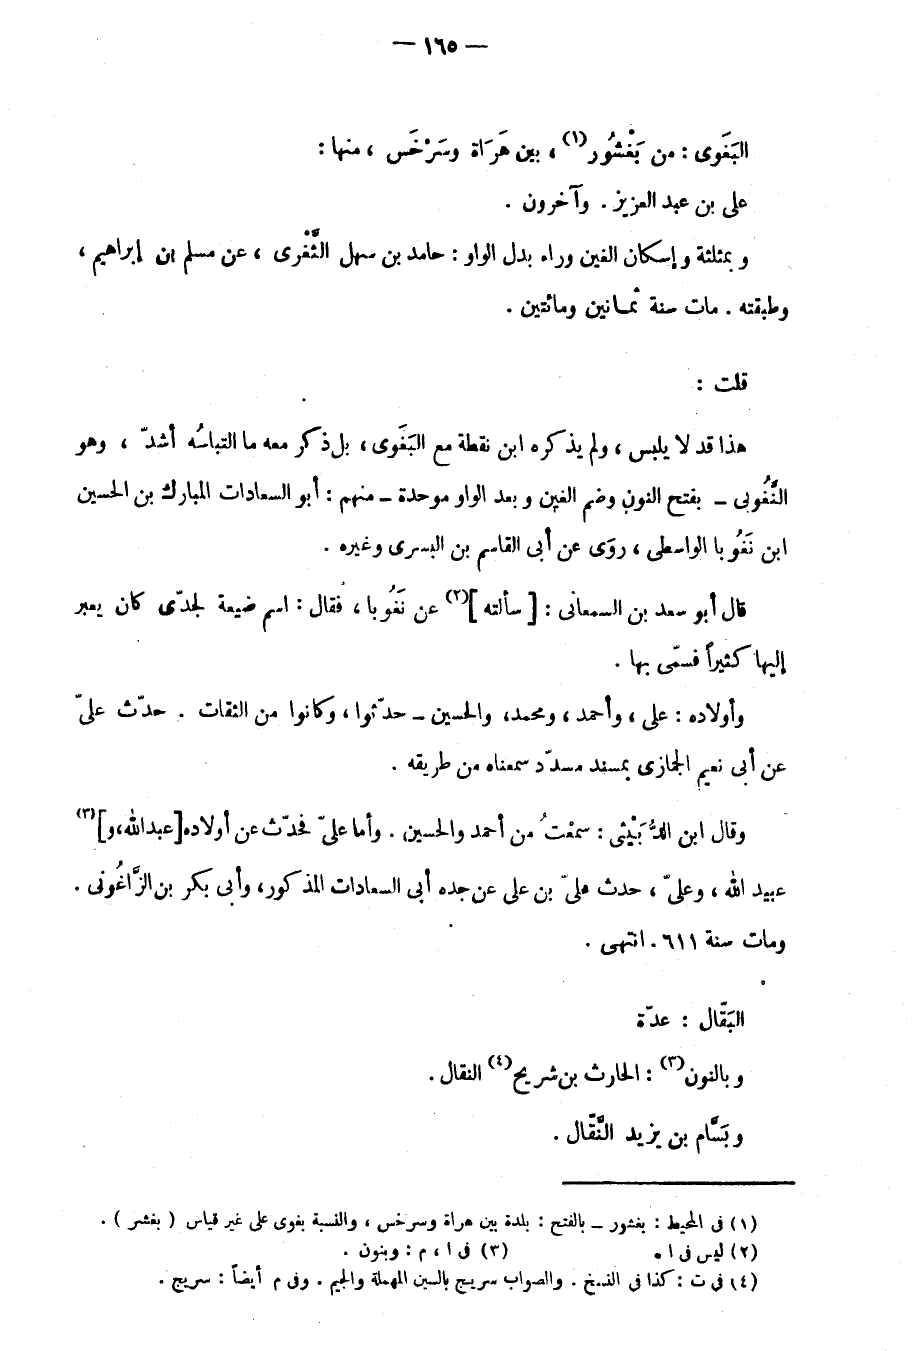 — ١٦٥ —
البَغَوى : من بَغْشُور(١) ، بين هَرَاة وسَرْخَس ، منها :
على بن عبد العزيز . وآخرون .
وبمثلثة وإسكان الغين وراء بدل الواو : حامد بن سهل الثَّغْرى ، عن مسلم بن إبراهيم ،
وطبقته . مات سنة ثمانين ومائتين .
قلت :
هذا قد لا يلبس ، ولم يذكره ابن نقطة مع البَغَوى ، بل ذكر معه ما التباسُه أشدّ ، وهو
النَّغُوبى – بفتح النون وضم الغين وبعد الواو موحدة – منهم : أبو السعادات المبارك بن الحسين
ابن نَغُوبا الواسطى ، روَى عن أبى القاسم بن البسرى وغيره .
قال أبو سعد بن السمعانى : [ سألته ](٢) عن نَغُوبا ، فقال : اسم ضيعة لجدّى كان يعبر
إليها كثيراً فسمّى بها .
وأولاده : على ، وأحمد ، ومحمد، والحسين – حدّثوا ، وكانوا من الثقات . حدّث علىّ
عن أبى نعيم الجمازى بمسند مسدّد سمعناه من طريقه .
وقال ابن الدُّبَيْثى : سمعْتُ من أحمد والحسين . وأما علىّ فحدّث عن أولاده [عبدالله،و](٣)
عبيد الله ، وعلىّ ، حدث علىّ بن على عن جده أبى السعادات المذكور، وأبى بكر بن الزَّاغُونى .
ومات سنة ٦١١ . انتهى .
البَقّال : عدّة
وبالنون(٣) : الحارث بن شريح(٤) النقال .
وبَسَّام بن يزيد النَّقّال .
(١) فى المحيط : بغشور – بالفتح : بلدة بين هراة وسرخس ، والنسبة بغوى على غير قياس ( بغشر ) .
(٢) ليس فى ا . (٣) فى ا ، م : وبنون .
(٤) فى ت : كذا فى النسخ . والصواب سريج بالسين المهملة والجيم . وفى م أيضاً : سريج .